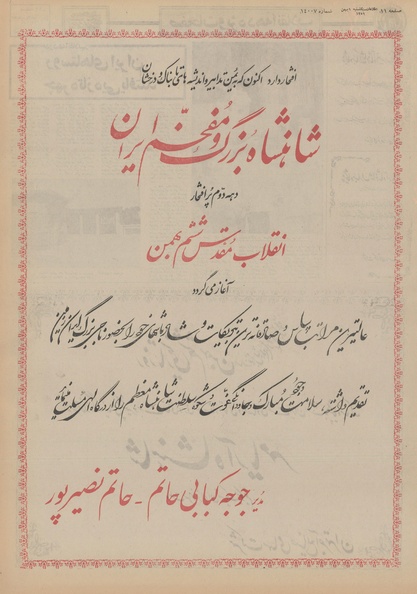 صفحه ۸۱
شماره ۱۴۰۰۷
افتخار دارد اکنون که بیمن تدابیر و اندیشه های تابناک و درخشان
شاهنشاه بزرگ و مفخم ایران
دهه دوم پر افتخار
انقلاب مقدس ششم بهمن
آغاز می گردد
عالیترین مراتب سپاس و صادقانه ترین تبریکات و شادباشهای خود را بحضور
تقدیم داشته، سلامت وجود مبارک و جاودانگی عزت و شوکت سلطنت شاهنشاه معظم را از درگاه الهی مسئلت
مدیر جوجه کبابی حاتم - حاتم نصیرپور